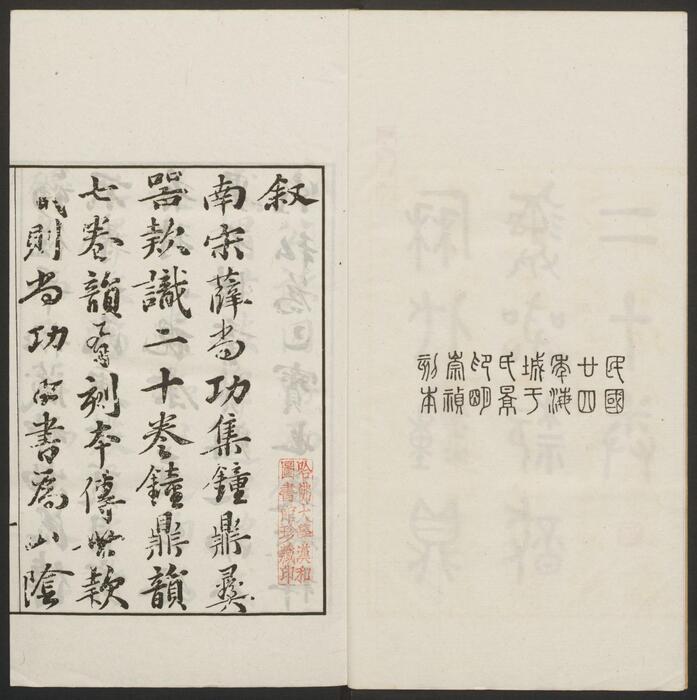 民國
廿四
年海
城于
氏景
印明
崇禎
刻本
叙
南宋薛尚功集鐘鼎彝
器款識二十卷鐘鼎韻
七卷韻刻本傳世款
識則尚功所書爲山陰
哈佛大學漢和
圖書館珍藏印